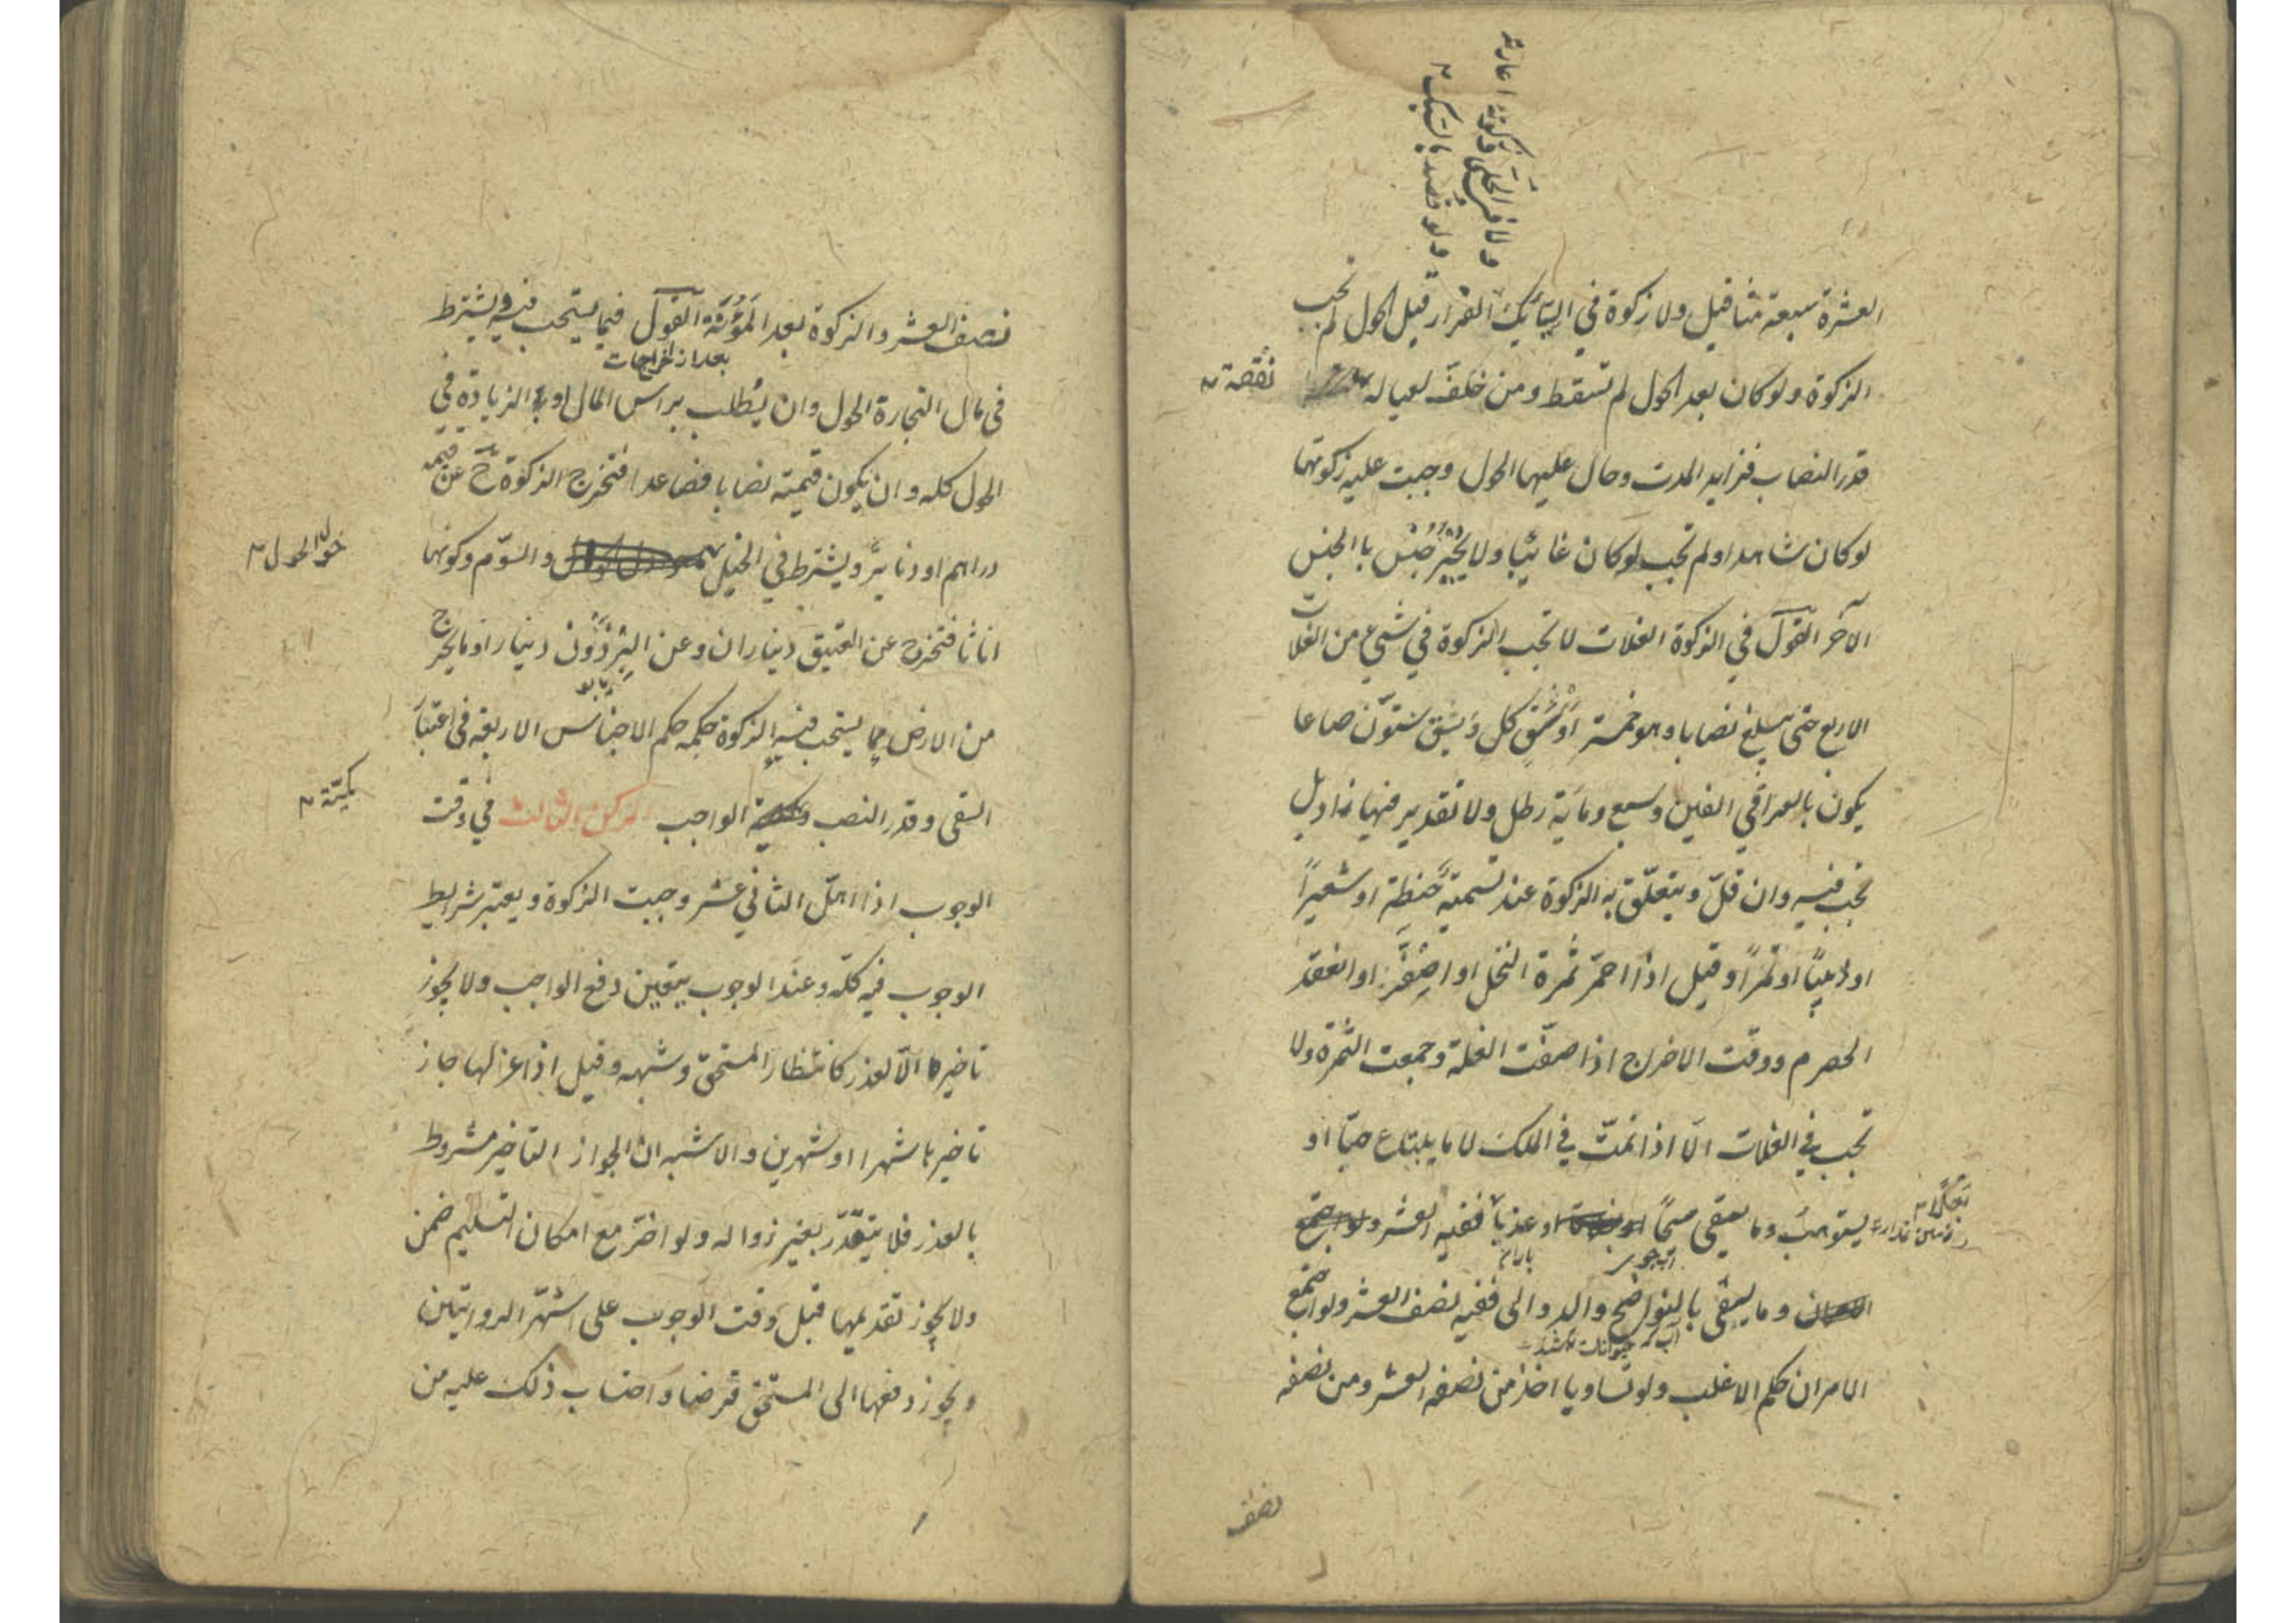 ولا في الحلي وزكوته اعارته
ولو قصد بالسبك
العشرة سبعة مثاقيل ولا زكوة في السبائك الفرار قبل الحول لم تجب
الزكوة ولو كان بعد الحول لم تسقط ومن خلف لعياله
نفقة
قدر النصاب فزايد المدت وحال عليها الحول وجبت عليه زكوتها
لو كان شاهدا ولم تجب لو كان غائبا ولا يجبر جنس باالجنس
الآخر القول في الزكوة الغلات لا تجب الزكوة في شيء من الغلات
الاربع حتى يبلغ نصابا وهو خمسة اوسق كل وسق ستون صاعا
يكون بالعراقي الفين وسبع ومائة رطل ولا تقدير فيها زاد بل
تجب فيه وان قل ويتعلق به الزكوة عند تسميته حنطة او شعيرا
او زبيبا او تمرا وقيل اذا احمر ثمرة النخل او اصفر او انعقد
الحصرم ووقت الاخراج اذا صفت الغلة وجمعت الثمرة ولا
تجب في الغلات الا اذا نمت في الملك لا ما يبتاع حبا او
يستوهب وما يسقى سيحا او عذبا ففيه العشر
بعلا
وما يسقى بالنواضح والدوالي ففيه نصف العشر ولو اجتمع
الامران حكم الاغلب ولو تساويا اخذ من نصفه العشر ومن نصفه
نصف
نصف العشر والزكوة بعد المؤنة القول فيما يستحب فيه يشترط
بعد از اخراجات
في مال التجارة الحول وان يطلب براس المال او الزيادة في
الحول كله وان يكون قيمته نصابا فصاعدا فتخرج الزكوة ح عن قيمته
دراهم او دنانير ويشترط في الخيل والسوم وكونها
حول الحول
اناثا فتخرج عن العتيق ديناران وعن البرذون دينار او ما يخرج
من الارض مما يستحب فيه الزكوة حكمه حكم الاجناس الاربعة في اعتبار
السقى وقدر النصب الواجب الركن الثالث في وقت
كمية
الوجوب اذا اهل الثاني عشر وجبت الزكوة ويعتبر شرايط
الوجوب فيه كله وعند الوجوب يتعين دفع الواجب ولا يجوز
تاخيرها الا لعذر كانتظار المستحق وشبهه وقيل اذا عزلها جاز
تاخيرها شهرا او شهرين والاشبه ان الجواز التاخير مشروط
بالعذر فلا يتقدر بغير زواله ولو اخر مع امكان التسليم ضمن
ولا يجوز تقديمها قبل وقت الوجوب على اشهر الروايتين
ويجوز دفعها الى المستحق قرضا واحتساب ذلك عليه من